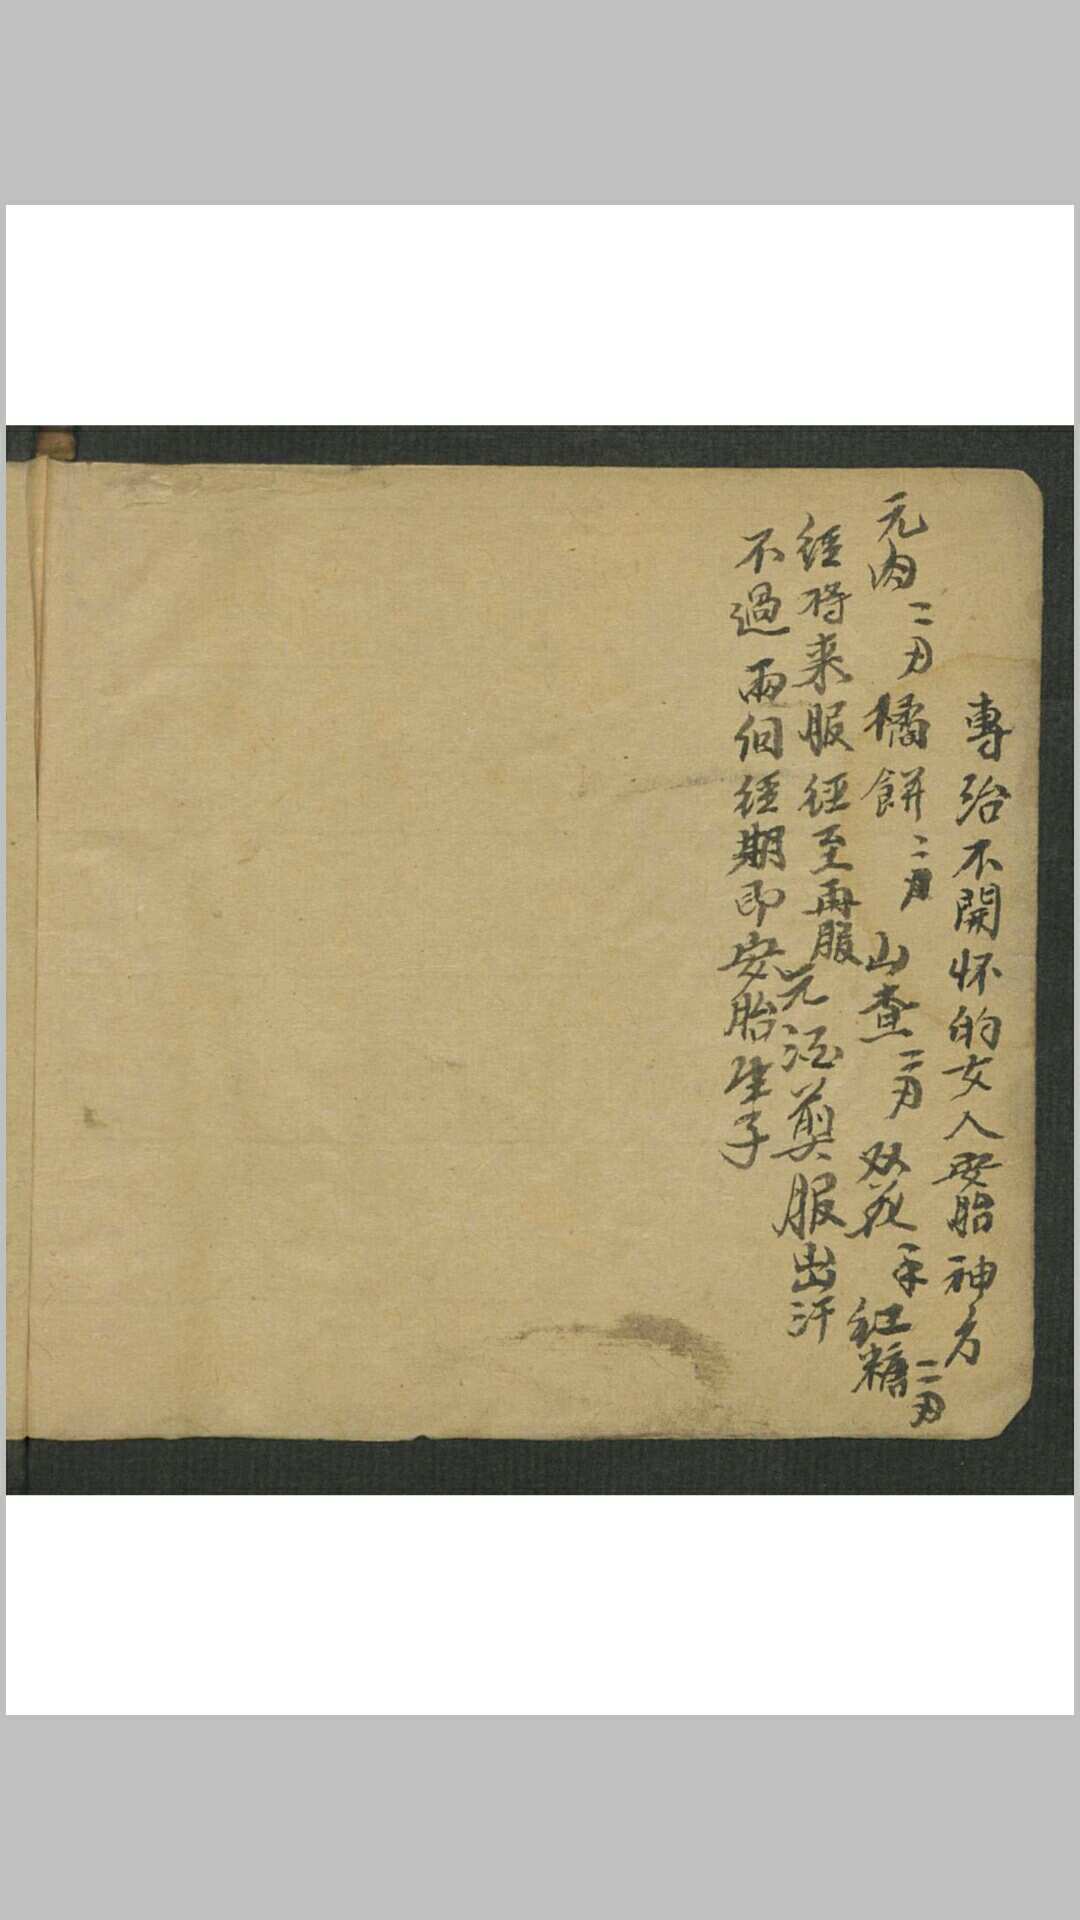 專治不開怀的女人安胎神方
元肉二刃橘餅二刃山查二刃双花一手紅糖二刃
經将来服經至再服元酒煎服出汗
不過兩個經期即安胎生子